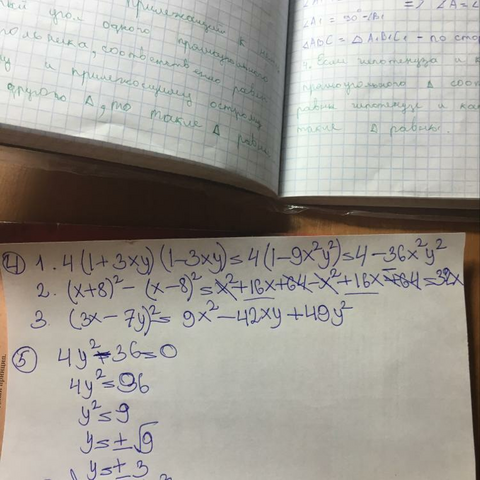 прилежащий к
угол одного прямоугольного
соответственно равны
и прилежащему острому
другого Δ, то такие Δ равны
=> ∠A=∠
∠ABC = ΔA₁B₁C₁ - по стор
Если гипотенуза и к
прямоугольного Δ соот
равны гипотенузе и ка
такие Δ равны.
4 1. 4(1+3xy)(1-3xy)=4(1-9x²y²)=4-36x²y²
2. (x+8)²-(x-8)²=x²+16x+64-x²+16x-64=32x
3. (3x-7y)²= 9x²-42xy+49y²
5 4y²-36=0
4y²=36
y²=9
y=±√9
y=±3